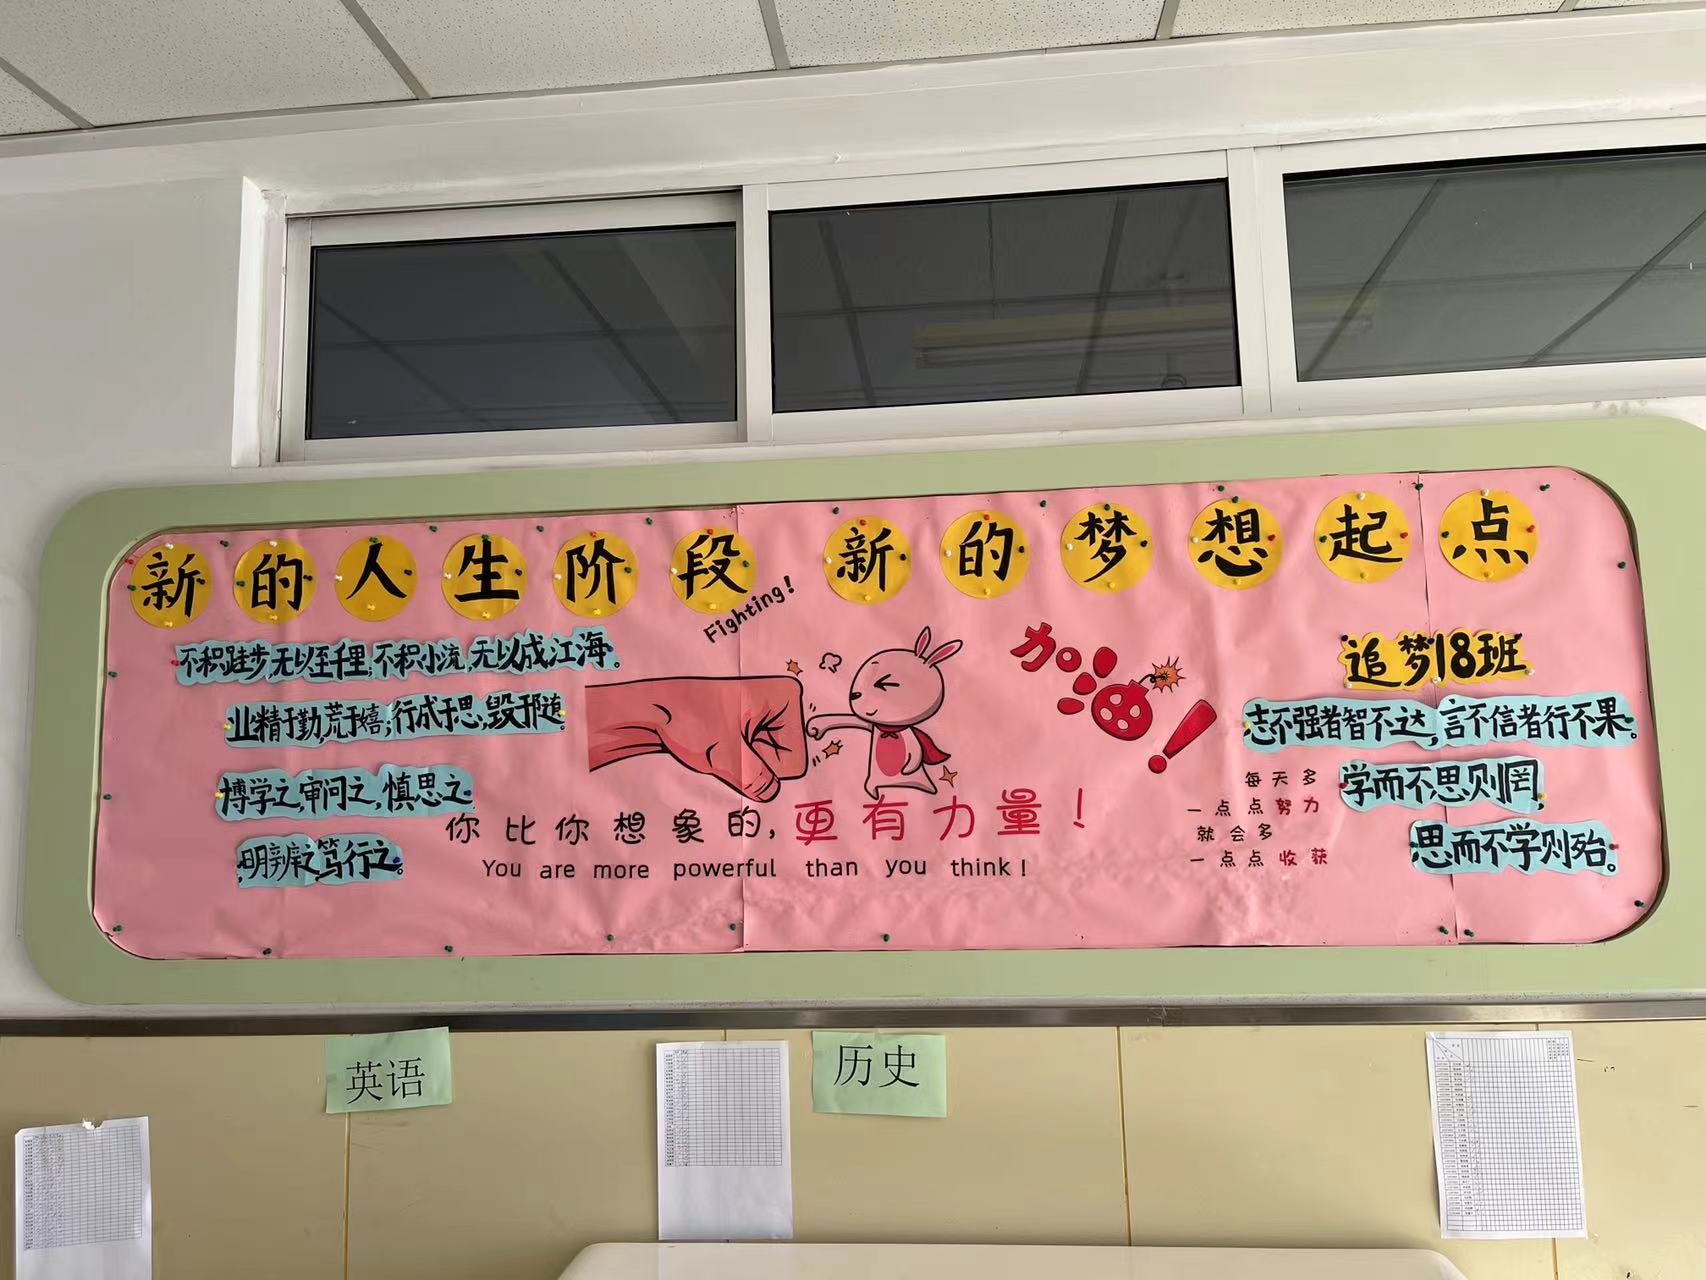 新的人生阶段 新的梦想起点
Fighting!
不积跬步,无以至千里,不积小流,无以成江海。
业精于勤,荒于嬉;行成于思,毁于随。
博学之,审问之,慎思之,
明辨之,笃行之。
你比你想象的,更有力量!
You are more powerful than you think!
加油!
追梦18班
志不强者智不达,言不信者行不果。
学而不思则罔,
思而不学则殆。
每天多
一点点努力
就会多
一点点收获
英语
历史